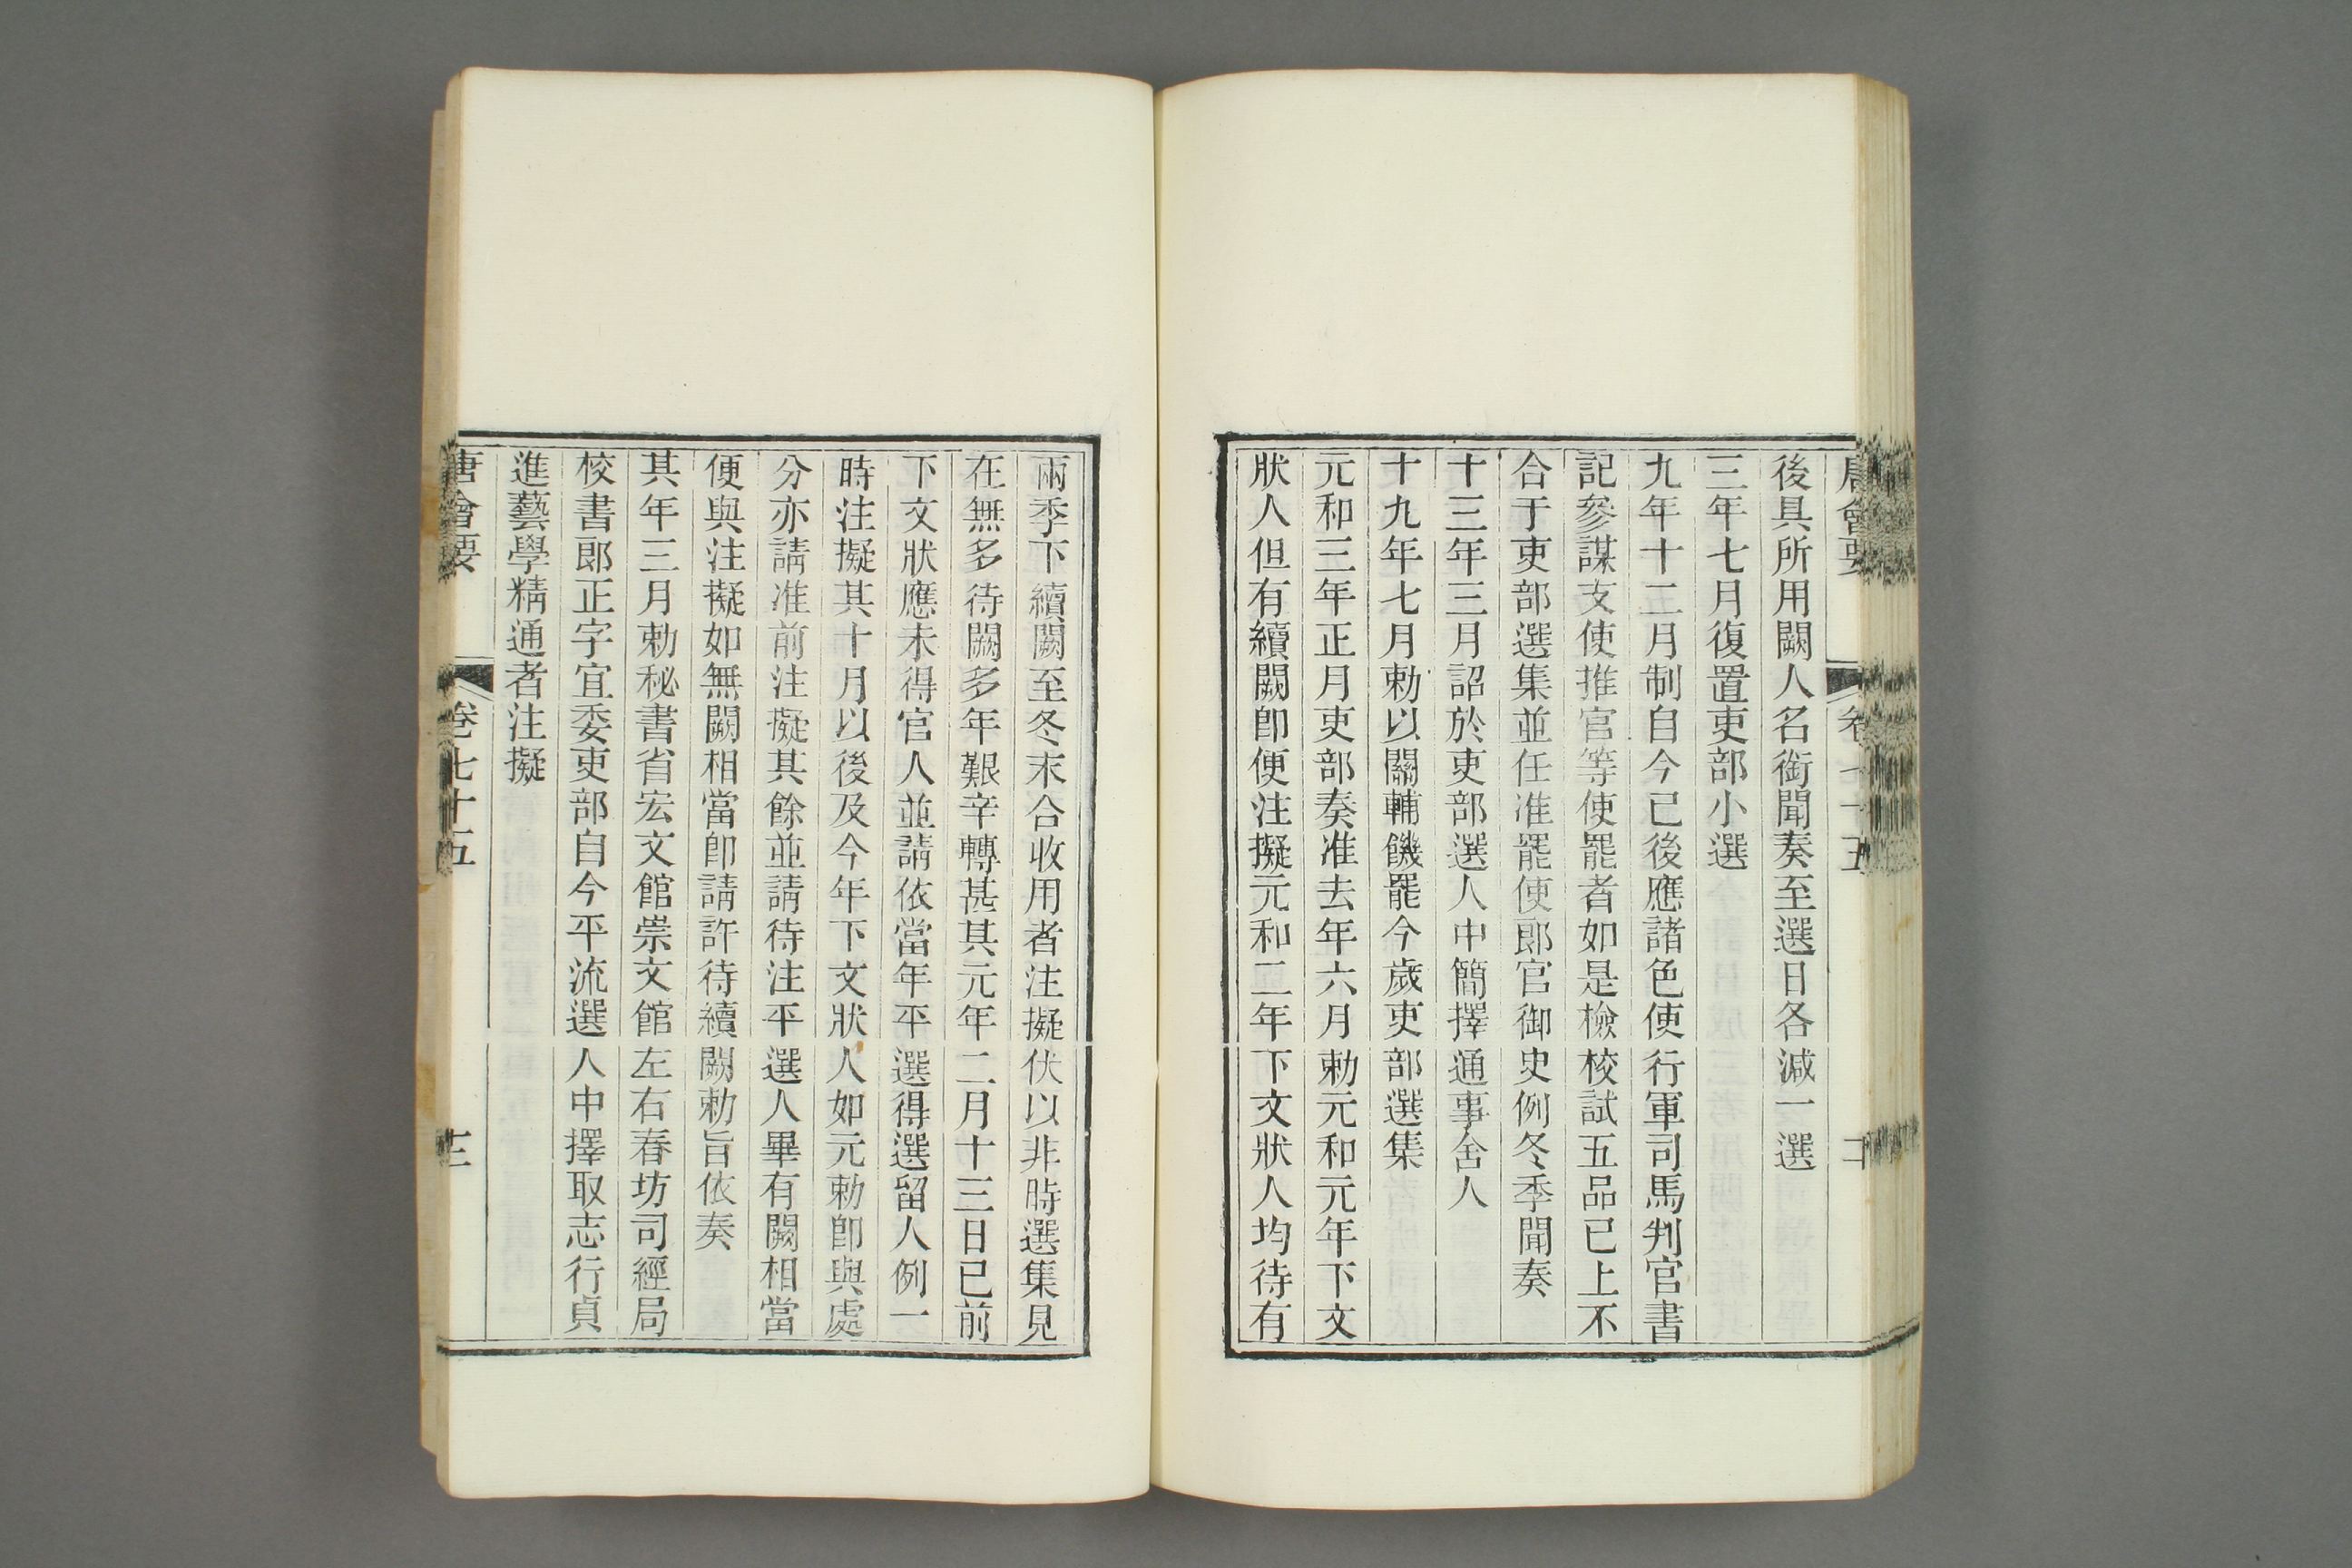 唐會要 卷七十五
後具所用闕人名銜聞奏至選日各減一選
三年七月復置吏部小選
九年十二月制自今已後應諸色使行軍司馬判官書
記參謀支使推官等使罷者如是檢校試五品已上不
合于吏部選集並任准罷使郎官御史例冬季聞奏
十三年三月詔於吏部選人中簡擇通事舍人
十九年七月勅以關輔饑罷今歲吏部選集
元和三年正月吏部奏准去年六月勅元和元年下文
狀人但有續闕卽便注擬元和二年下文狀人均待有
兩季下續闕至冬末合收用者注擬伏以非時選集見
在無多待闕多年艱辛轉甚其元年二月十三日已前
下文狀應未得官人並請依當年平選得選留人例一
時注擬其十月以後及今年下文狀人如元勅卽與處
分亦請准前注擬其餘並請待注平選人畢有闕相當
便與注擬如無闕相當卽請許待續闕勅旨依奏
其年三月勅秘書省宏文館崇文館左右春坊司經局
校書郎正字宜委吏部自今平流選人中擇取志行貞
進藝學精通者注擬
唐會要 卷七十五